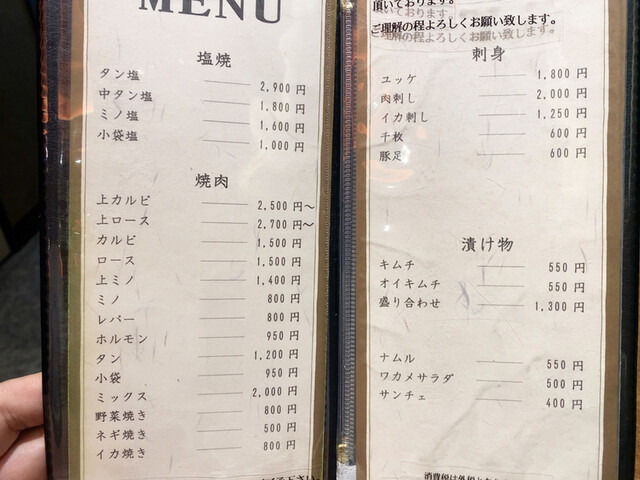 MENU
塩焼
タン塩 2,900 円
中タン塩 1,800 円
ミノ塩 1,600 円
小袋塩 1,000 円
焼肉
上カルビ 2,500 円～
上ロース 2,700 円～
カルビ 1,500 円
ロース 1,500 円
上ミノ 1,400 円
ミノ 800 円
レバー 800 円
ホルモン 950 円
タン 1,200 円
小袋 950 円
ミックス 2,000 円
野菜焼き 800 円
ネギ焼き 500 円
イカ焼き 800 円
頂いております。
ご理解の程よろしくお願い致します。
刺身
ユッケ 1,800 円
肉刺し 2,000 円
イカ刺し 1,250 円
千枚 600 円
豚足 600 円
漬け物
キムチ 550 円
オイキムチ 550 円
盛り合わせ 1,300 円
ナムル 550 円
ワカメサラダ 500 円
サンチェ 400 円